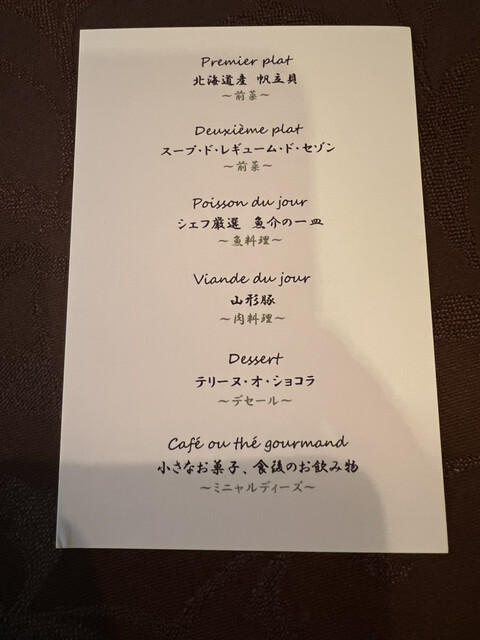 Premier plat
北海道産 帆立貝
〜前菜〜
Deuxième plat
スープ・ド・レギューム・ド・セゾン
〜前菜〜
Poisson du jour
シェフ厳選 魚介の一皿
〜魚料理〜
Viande du jour
山形豚
〜肉料理〜
Dessert
テリーヌ・オ・ショコラ
〜デセール〜
Café ou thé gourmand
小さなお菓子、食後のお飲み物
〜ミニャルディーズ〜